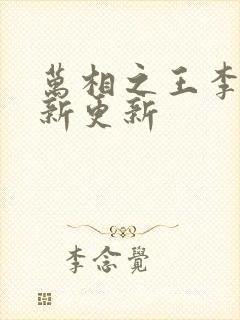 萬相之王李
新更新
李念覺